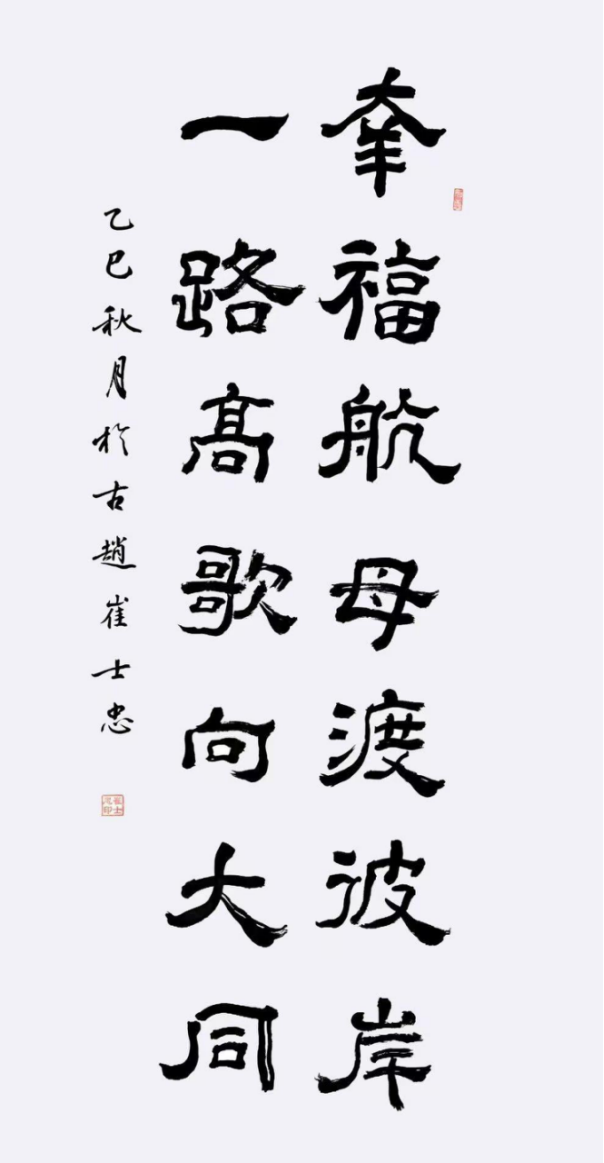 幸福航母渡彼岸
一路髙歌向大同
乙巳秋月於古趙崔士忠
崔士忠印